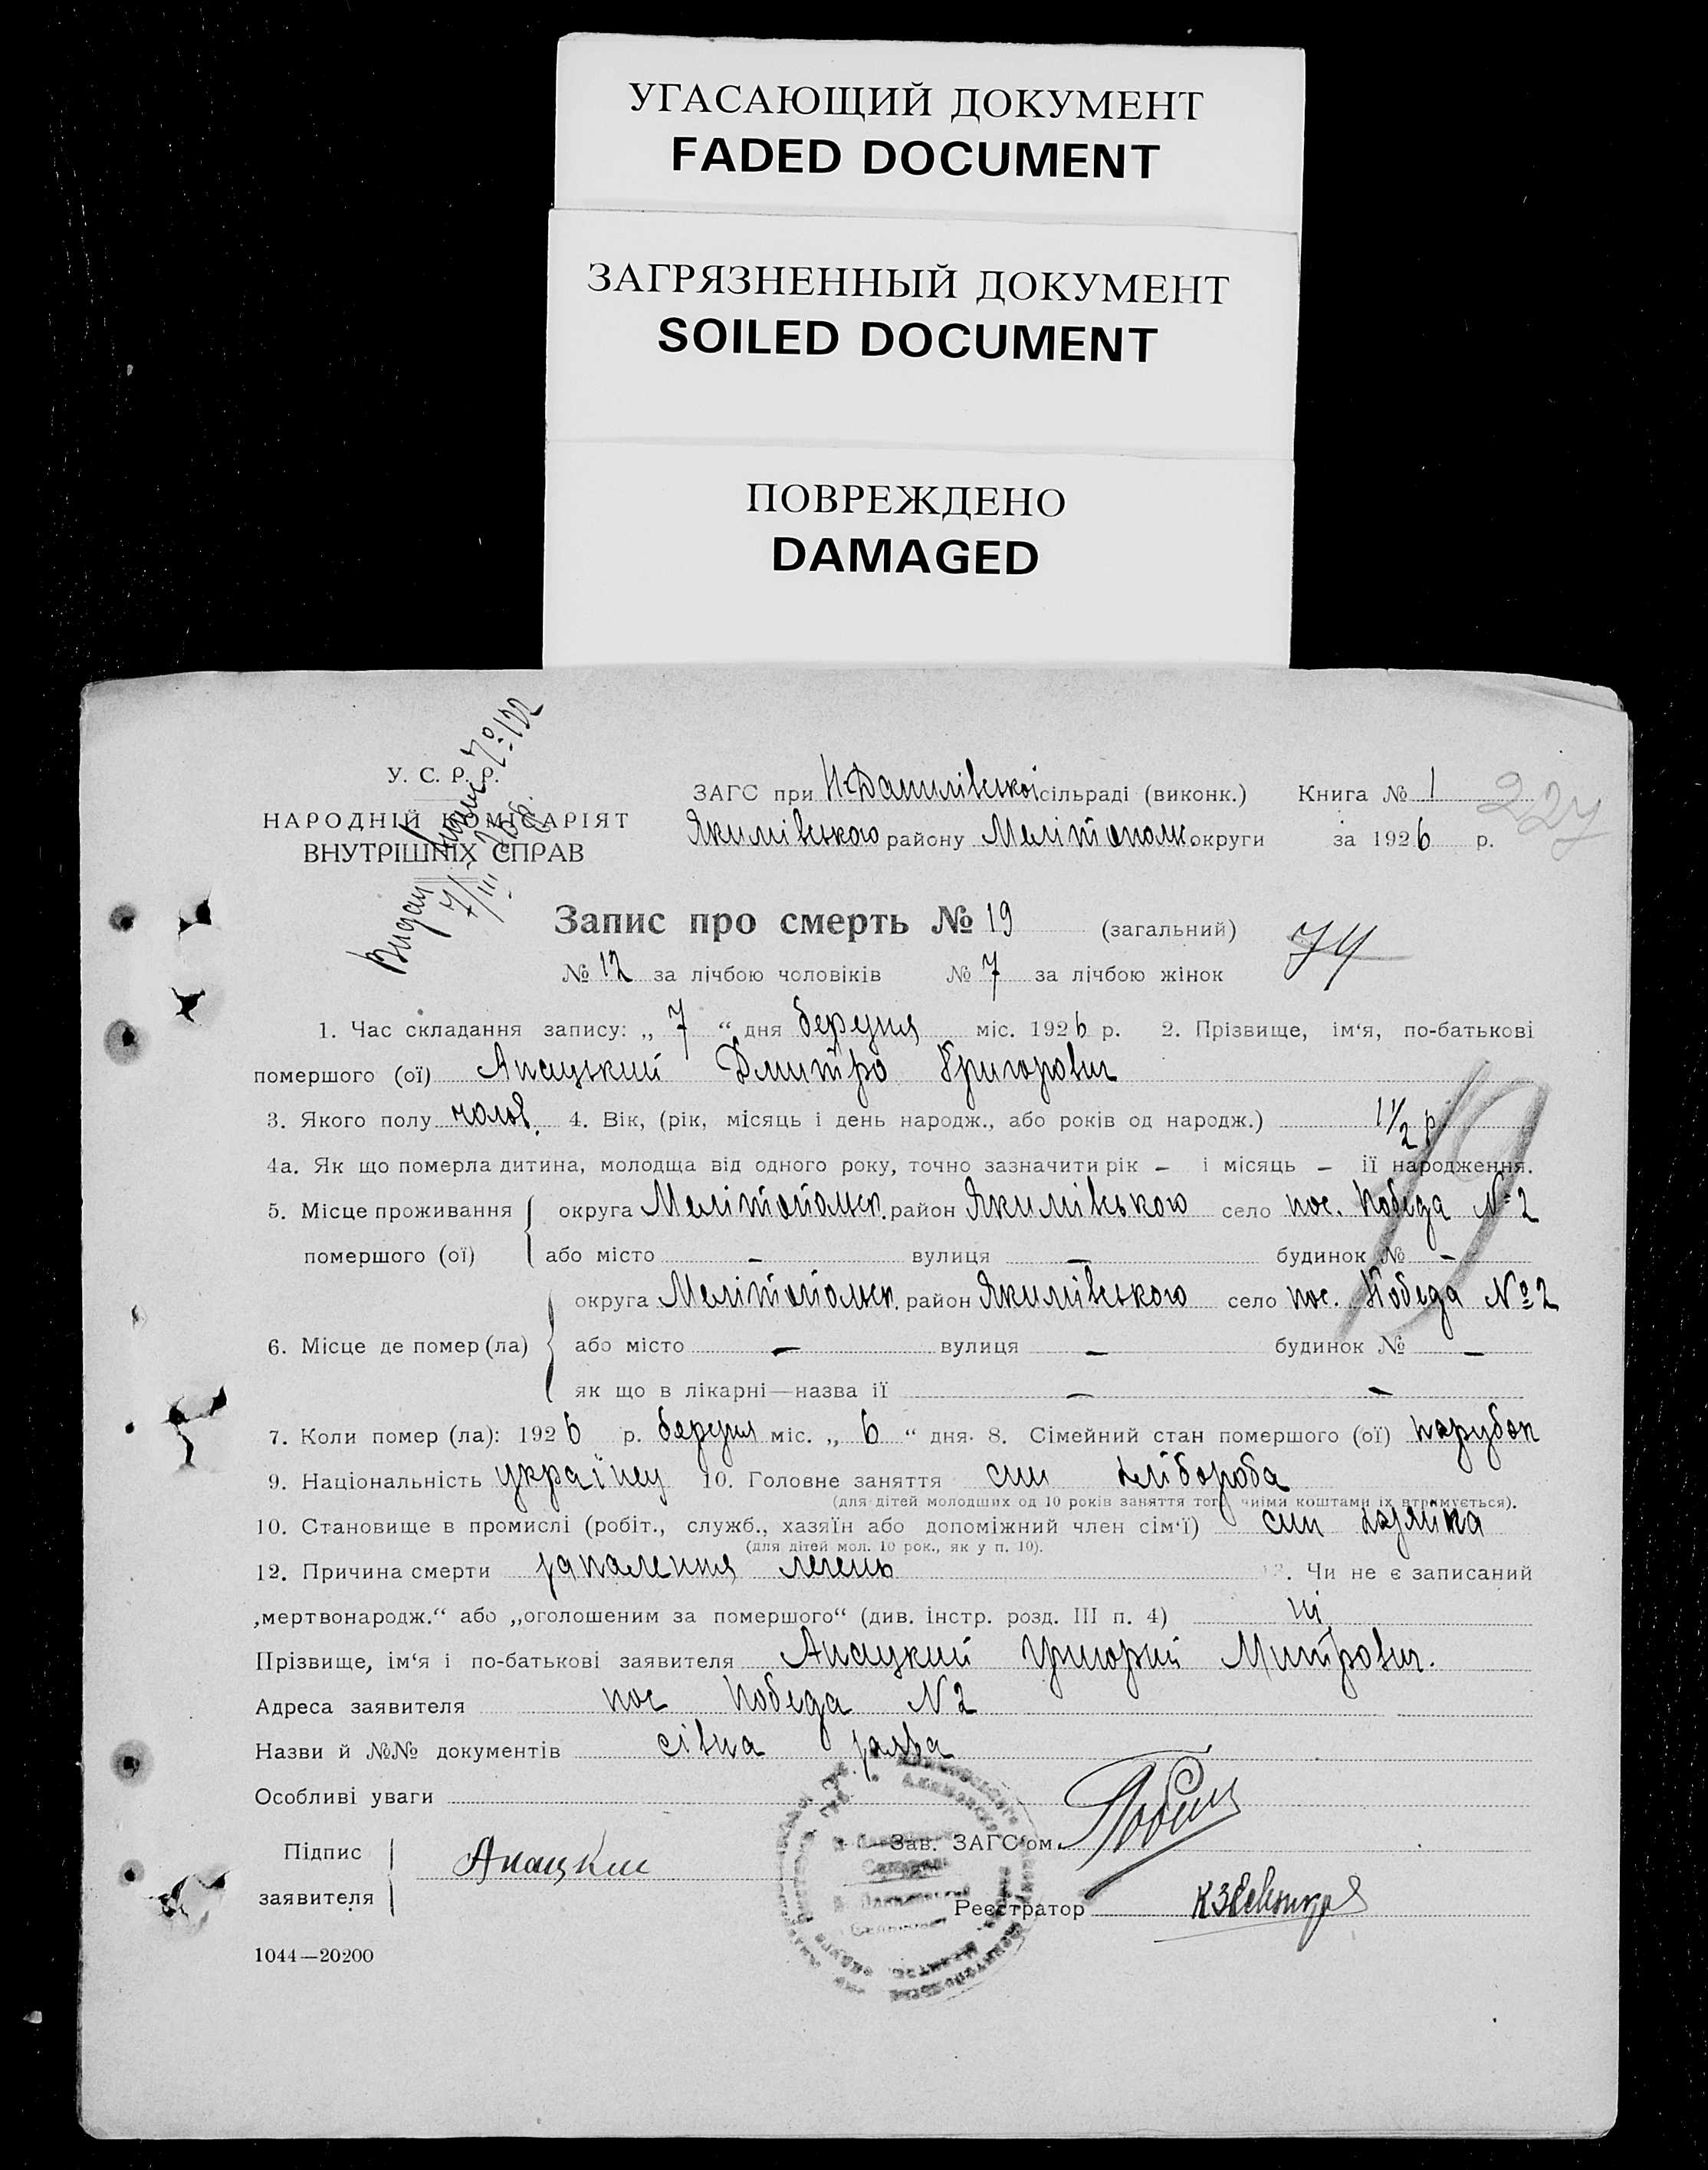 УГАСАЮЩИЙ ДОКУМЕНТ
FADED DOCUMENT
ЗАГРЯЗНЕННЫЙ ДОКУМЕНТ
SOILED DOCUMENT
ПОВРЕЖДЕНО
DAMAGED
У. С. Р. Р.
НАРОДНІЙ КОМІСАРІЯТ
ВНУТРІШНІХ СПРАВ
Видан №122
7/III 26 р.
ЗАГС при Н-Данилівської сільраді (виконк.) Книга № 1 227
Якимівського району Мелітопольс. округи за 1926 р.
Запис про смерть № 19 (загальний) 74
№ 12 за лічбою чоловіків № 7 за лічбою жінок
1. Час складання запису: „ 7 “ дня березня міс. 1926 р. 2. Прізвище, ім‘я, по-батькові
помершого (ої) Апацький Дмитро Григорович
3. Якого полу чолов. 4. Вік, (рік, місяць і день народж., або років од народж.) 1 1/2 р. 19
4а. Як що померла дитина, молодща від одного року, точно зазначити рік – і місяць – її народження.
5. Місце проживання округа Мелітопольск. район Якимівського село пос. Победа № 2
помершого (ої) або місто – вулиця – будинок № –
округа Мелітопольск. район Якимівського село пос. Победа № 2
6. Місце де помер (ла) або місто – вулиця – будинок № –
як що в лікарні—назва її – –
7. Коли помер (ла): 1926 р. березня міс. „ 6 “ дня. 8. Сімейний стан помершого (ої) парубок
9. Національність українец 10. Головне заняття син хлібороба
(для дітей молодших од 10 років заняття того чиїми коштами їх втримується).
10. Становище в промислі (робіт., служб., хазяїн або допоміжний член сім‘ї) син хазяїна
(для дітей мол. 10 рок., як у п. 10).
12. Причина смерти запалення легень 13. Чи не є записаний
„мертвонародж.“ або „оголошеним за помершого“ (див. інстр. розд. III п. 4) ні
Прізвище, ім‘я і по-батькові заявителя Апацкий Григорий Митрович.
Адреса заявителя пос Победа N 2
Назви й №№ документів сівна заява
Особливі уваги
Підпис
заявителя Апацкий
Зав. ЗАГС‘ом
Реєстратор
1044—20200